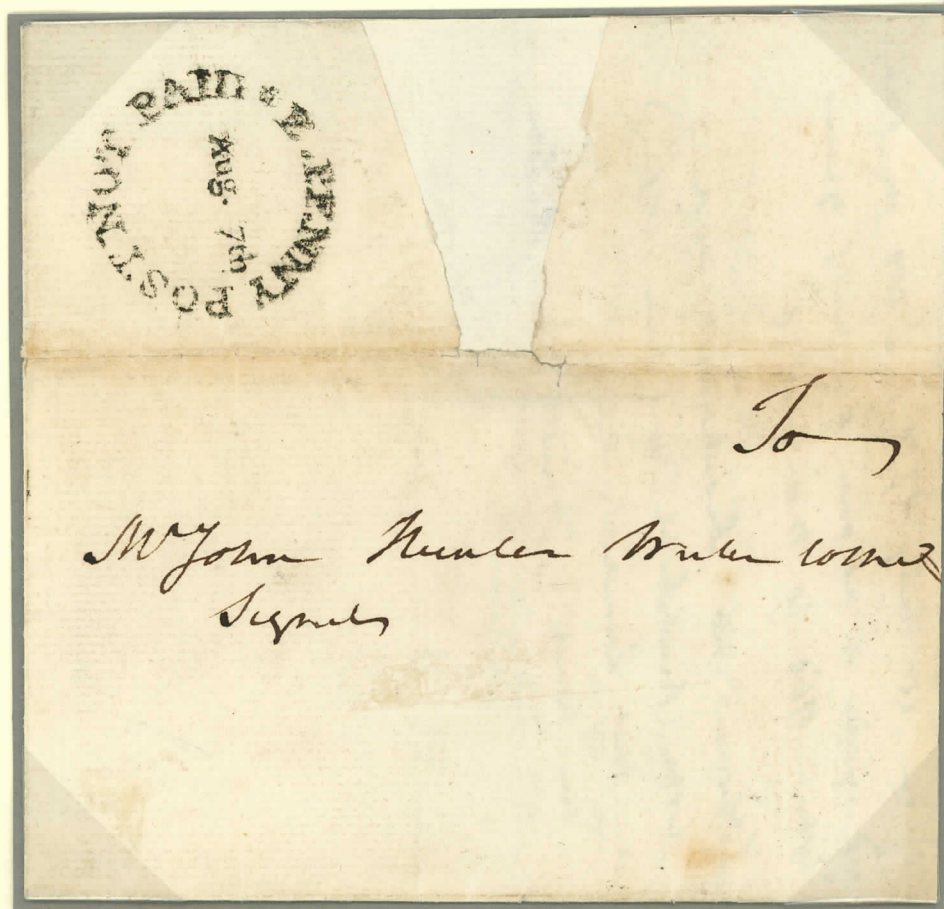 PENNY POST NOT PAID
Aug. 7th
To
Mr John Hunter Writer to the
Signet